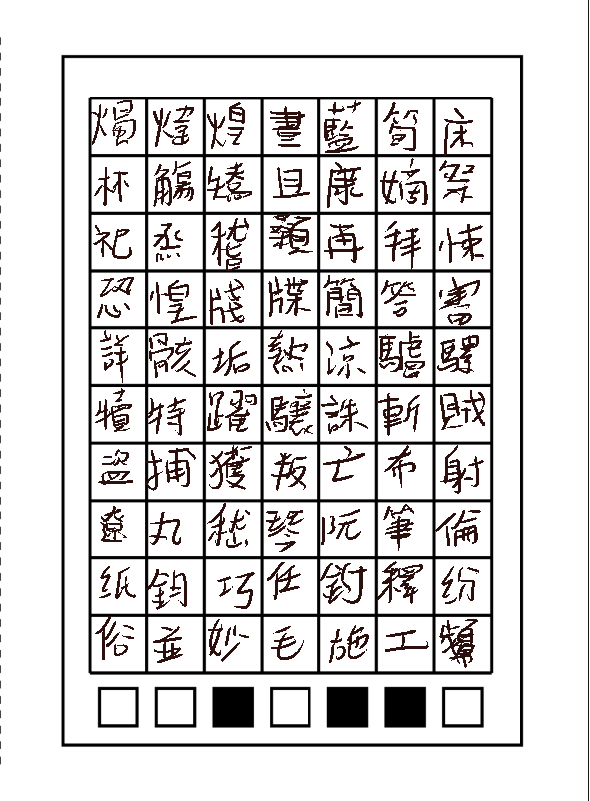 燭煒煌晝藍筍床
杯觴矯且康嫡祭
祀烝稽顙再拜悚
恐惶牋牒簡答審
詳骸垢熱涼驢騾
犢特躍驤誅斬賊
盜捕獲叛亡布射
遼丸嵇琴阮筆倫
紙鈞巧任釣釋紛
俗並妙毛施工顰